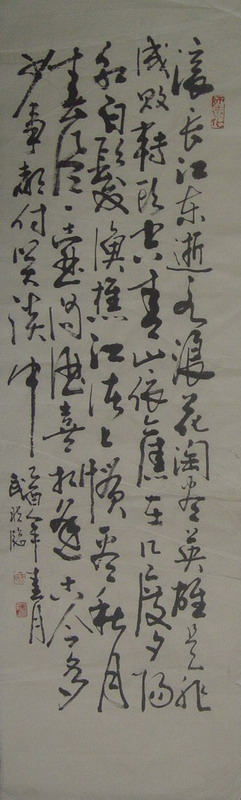 滚滚长江东逝水浪花淘尽英雄是非
成敗转头空青山依舊在几度夕阳
红白髮渔樵江渚上惯看秋月
春风一壶浊酒喜相逢古今多
少事都付笑谈中
乙酉年春月
临